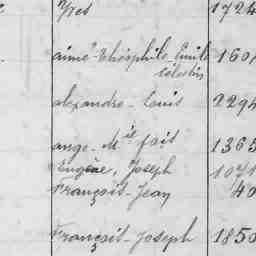 Yves 1724
aimé-Théophile-Emile 1601
Célestin
alexandre-Louis 2294
ange-Mie 1365
Eugène, Joseph 1071
François-Jean 40
François-Joseph 1850